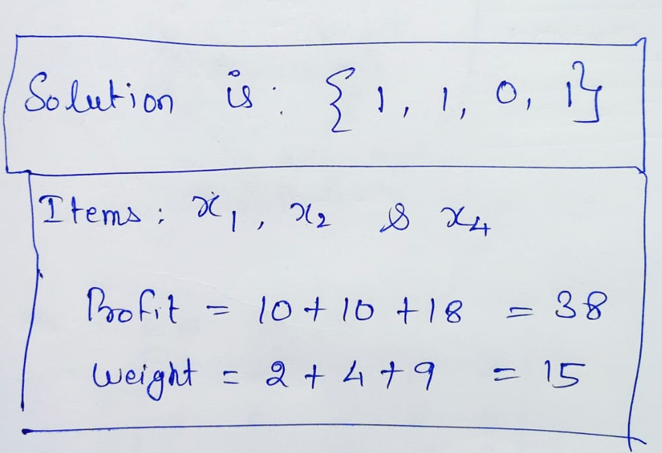 Solution is: {1, 1, 0, 1}
Items: x₁, x₂ & x₄
Profit = 10 + 10 + 18 = 38
Weight = 2 + 4 + 9 = 15